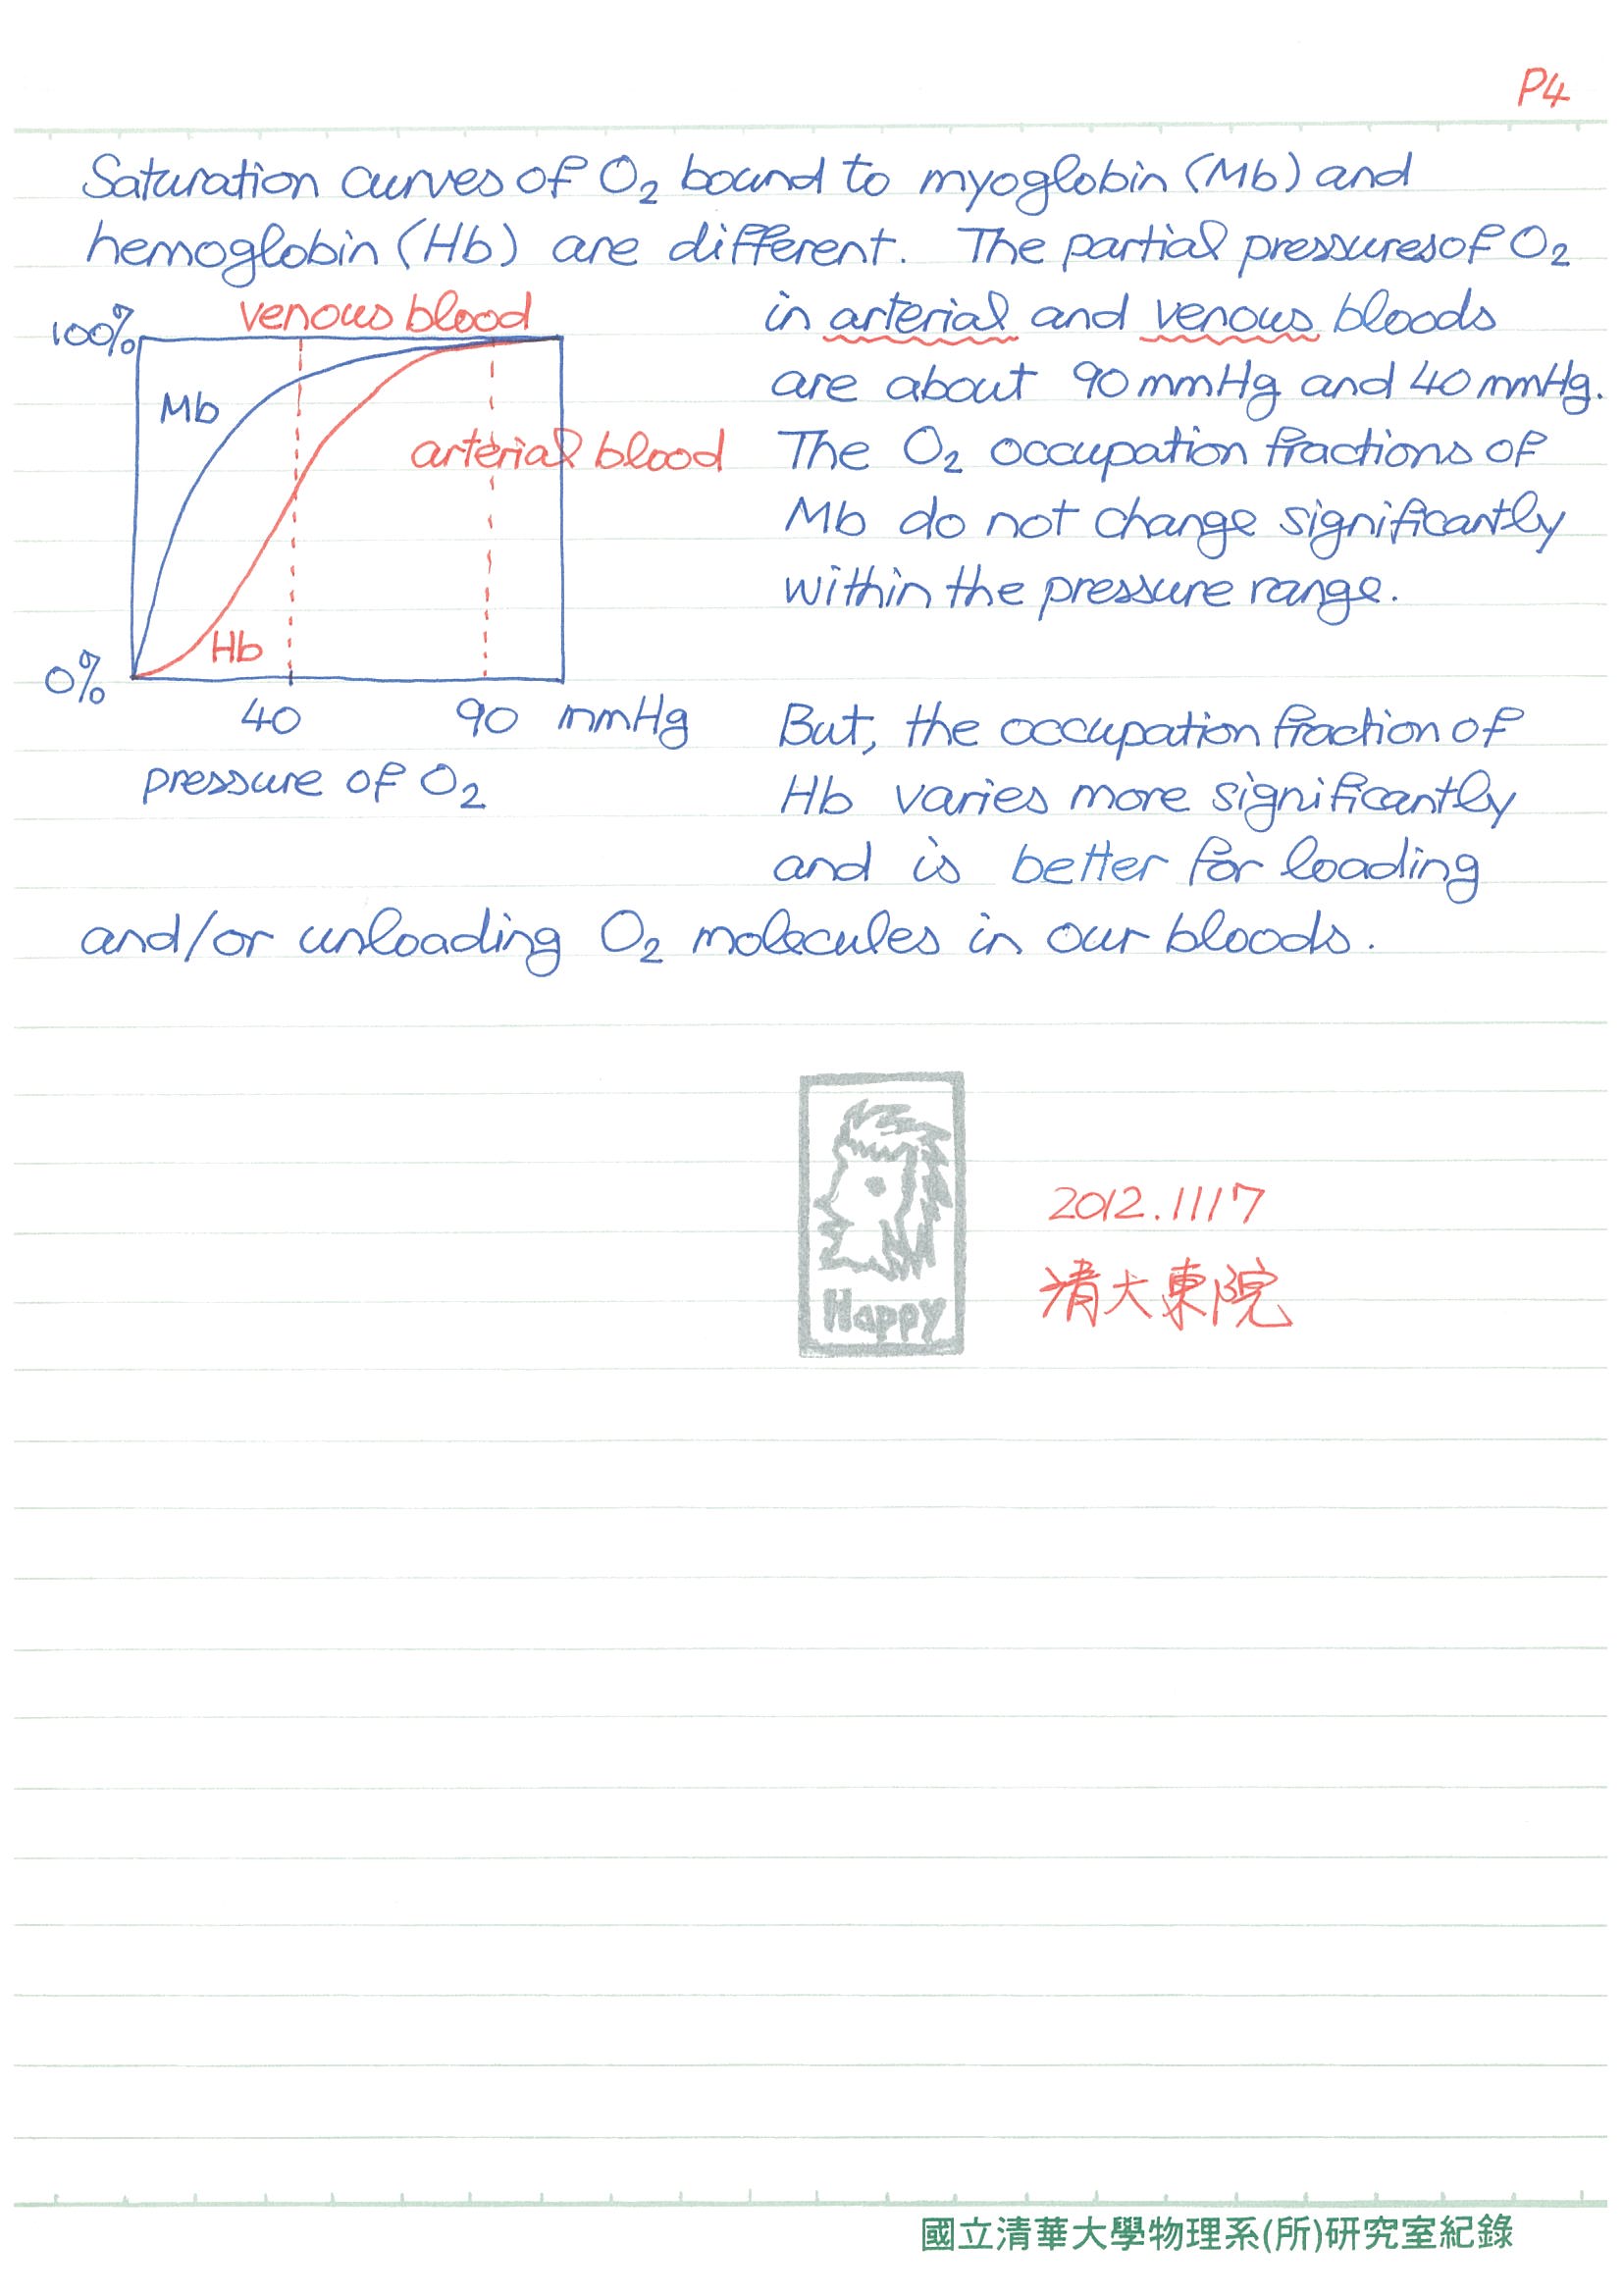 P4
Saturation curves of O₂ bound to myoglobin (Mb) and
hemoglobin (Hb) are different. The partial pressures of O₂
venous blood
in arterial and venous bloods
100%
are about 90 mmHg and 40 mmHg.
Mb
arterial blood
The O₂ occupation fractions of
Mb do not change significantly
within the pressure range.
Hb
0%
40 90 mmHg
pressure of O₂
But, the occupation fraction of
Hb varies more significantly
and is better for loading
and/or unloading O₂ molecules in our bloods.
Happy
2012.1117
清大東院
國立清華大學物理系(所)研究室紀錄